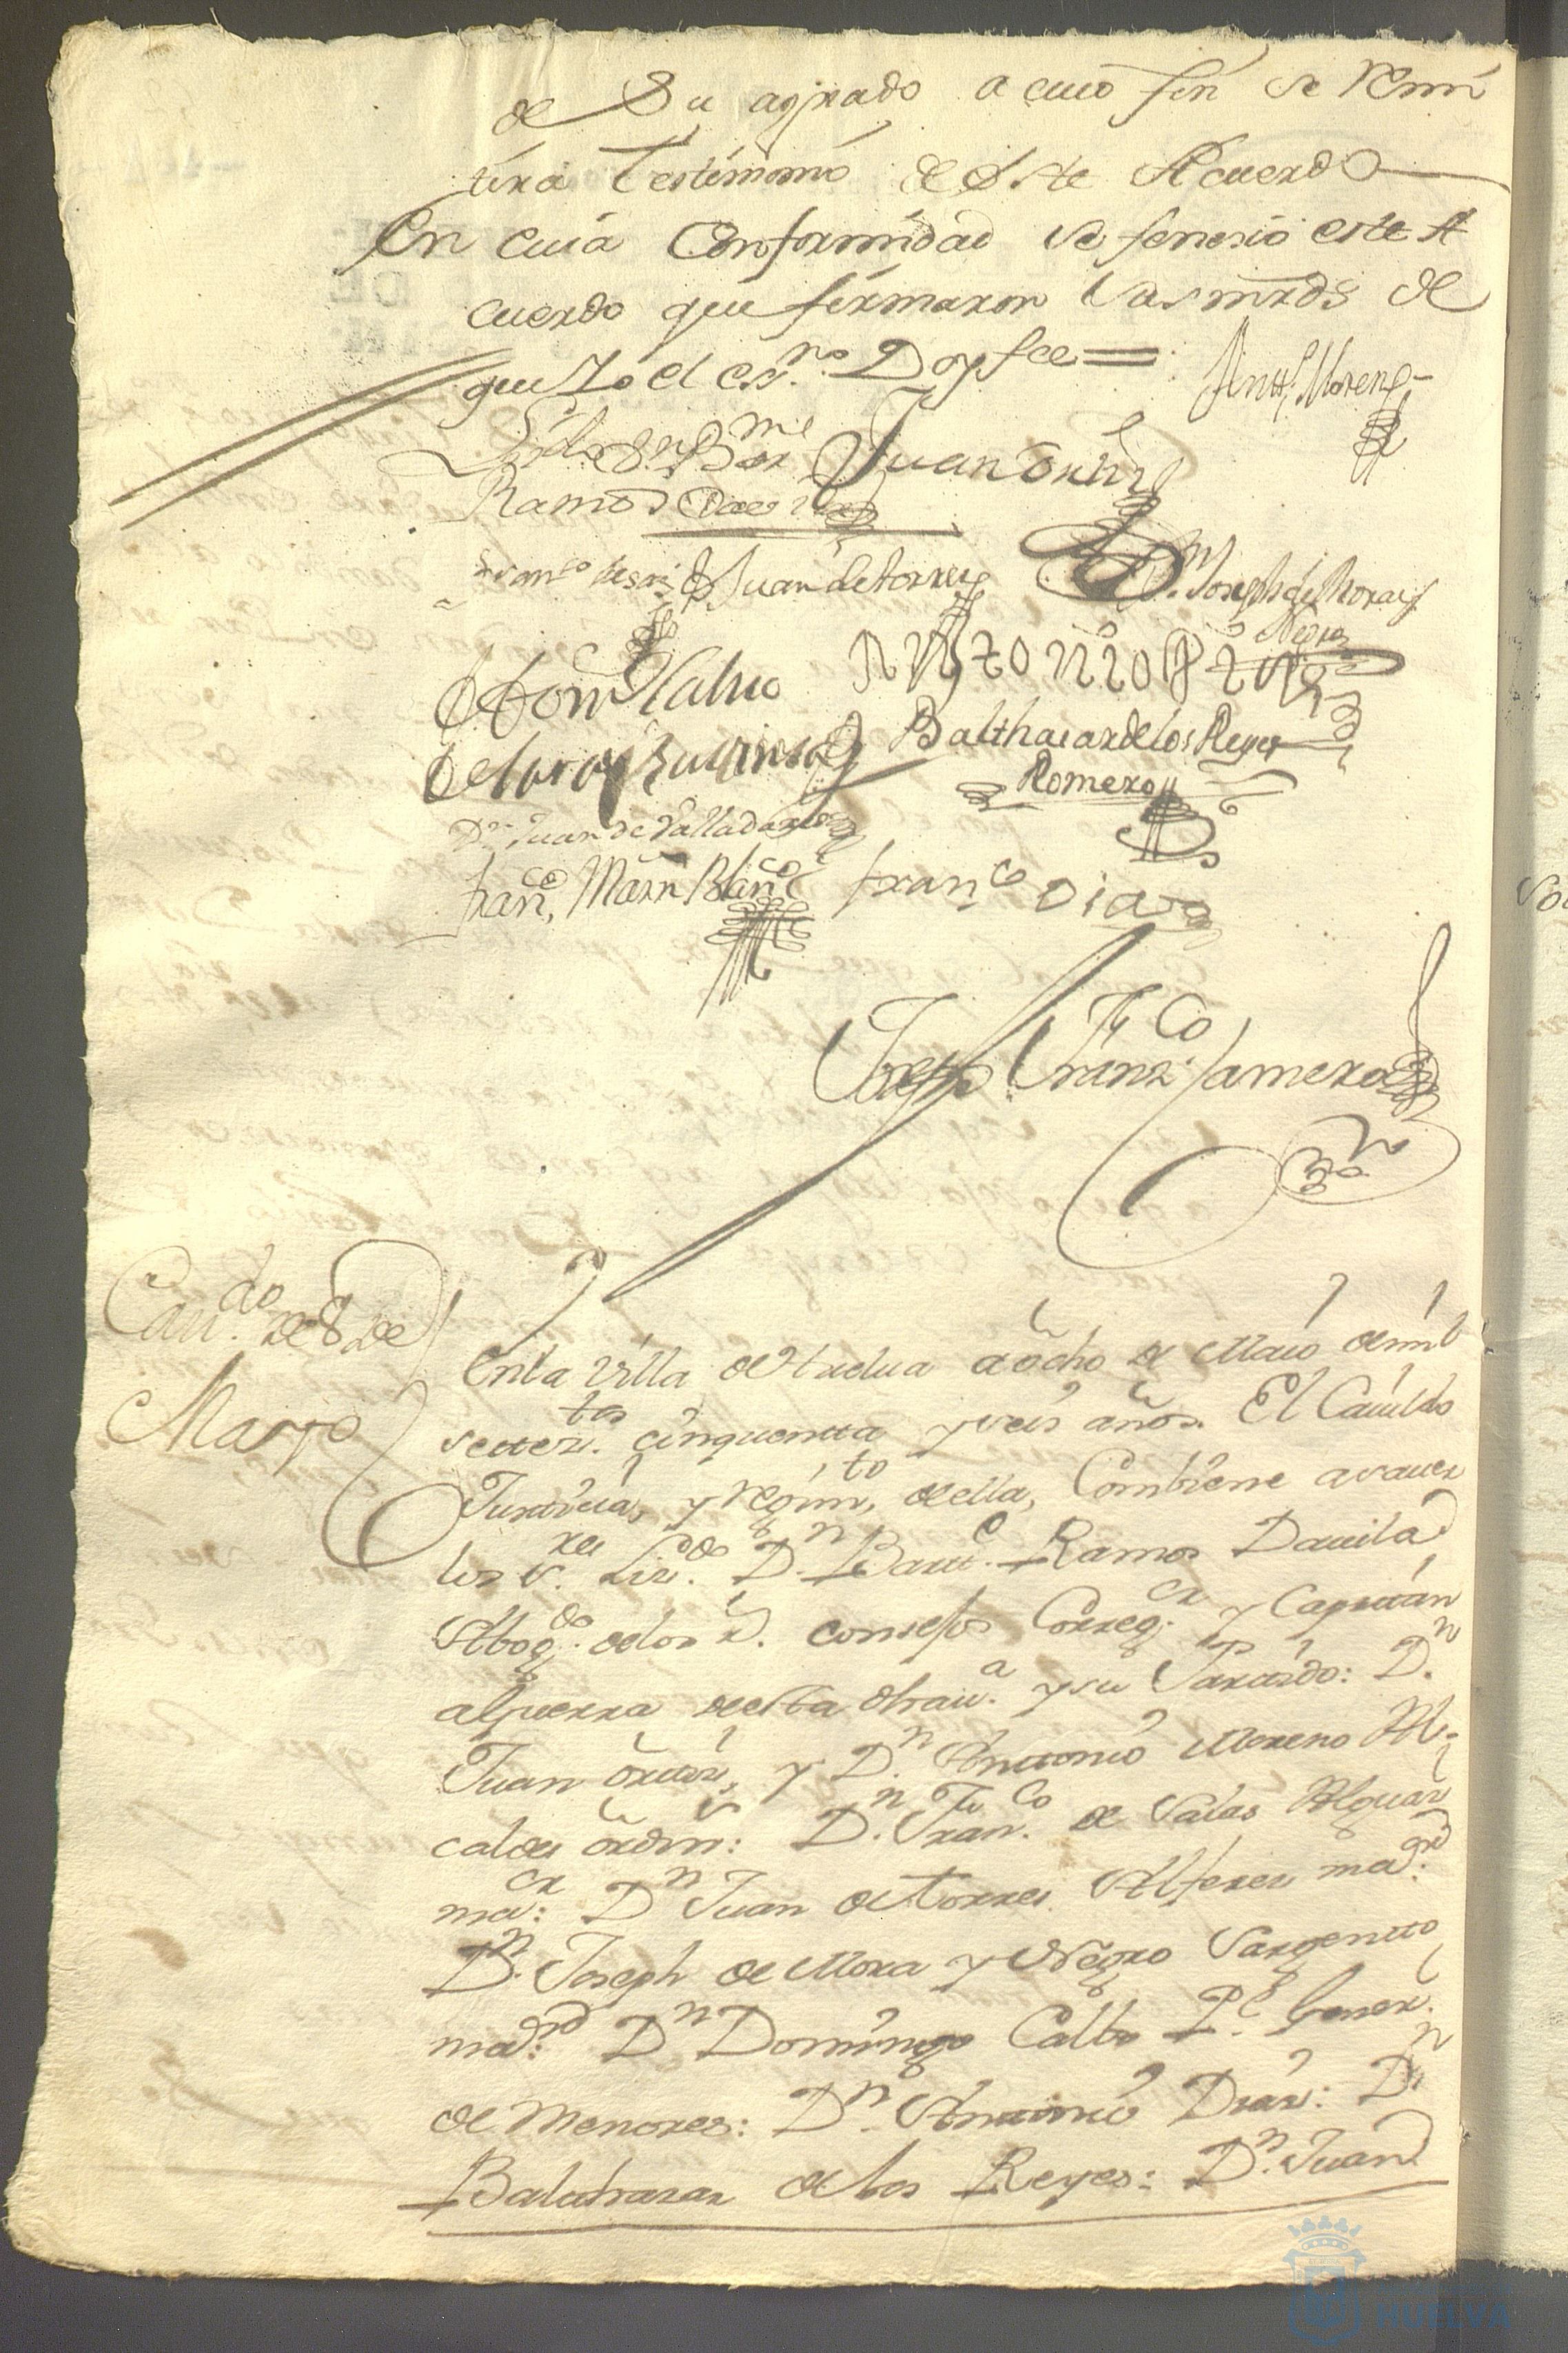 de Su agrado a cuio fin se remi
tirá Testimonio de este Acuerdo
En cuia Conformidad se fenesió este A
cuerdo que firmaron sus mrds de
que Yo el essno. Doy fee =
Antt. Moreno
Lizdo. Dn. Barme
Ramos Davila
Juan Ortiz
Juan de torres
Dn. Joseph de Mora y
Negro
Domo Calvo
Antonio Diaz
Balthasar de los Reyes
Romero
Dn. Juan de Valladares
Franco. Marn Blanco
Franco Diaz
Joseph Franzco. Jamero
Cauido. de 8 de
Mayo
En la Villa de Huelva a ocho de Maio de mil
settezs. cinquentta y seis años. El Cauildo
Justicia, y regimto, de ella, Combiene a sauer
los Sres. Lizdo. Dn. Barme. Ramos Dauila
Abogdo. de los Rs. consejos Corregor y Capitán
a guerra de esta dha uia. y su Partido: Dn.
Juan Ortiz, y Dn. Antonio Moreno Al-
caldes ordins: Dn. Franco. de Salas Alguazl
maor: Dn Juan de Torres Alferes maor.
Dn. Joseph de Mora y Negro Sargentto
maor: Dn Domingo Calbo Pe. Gener.
de Menores: Dn. Antonio Diaz: Dn
Balthazar de los Reyes: Dn. Juan
HUELVA